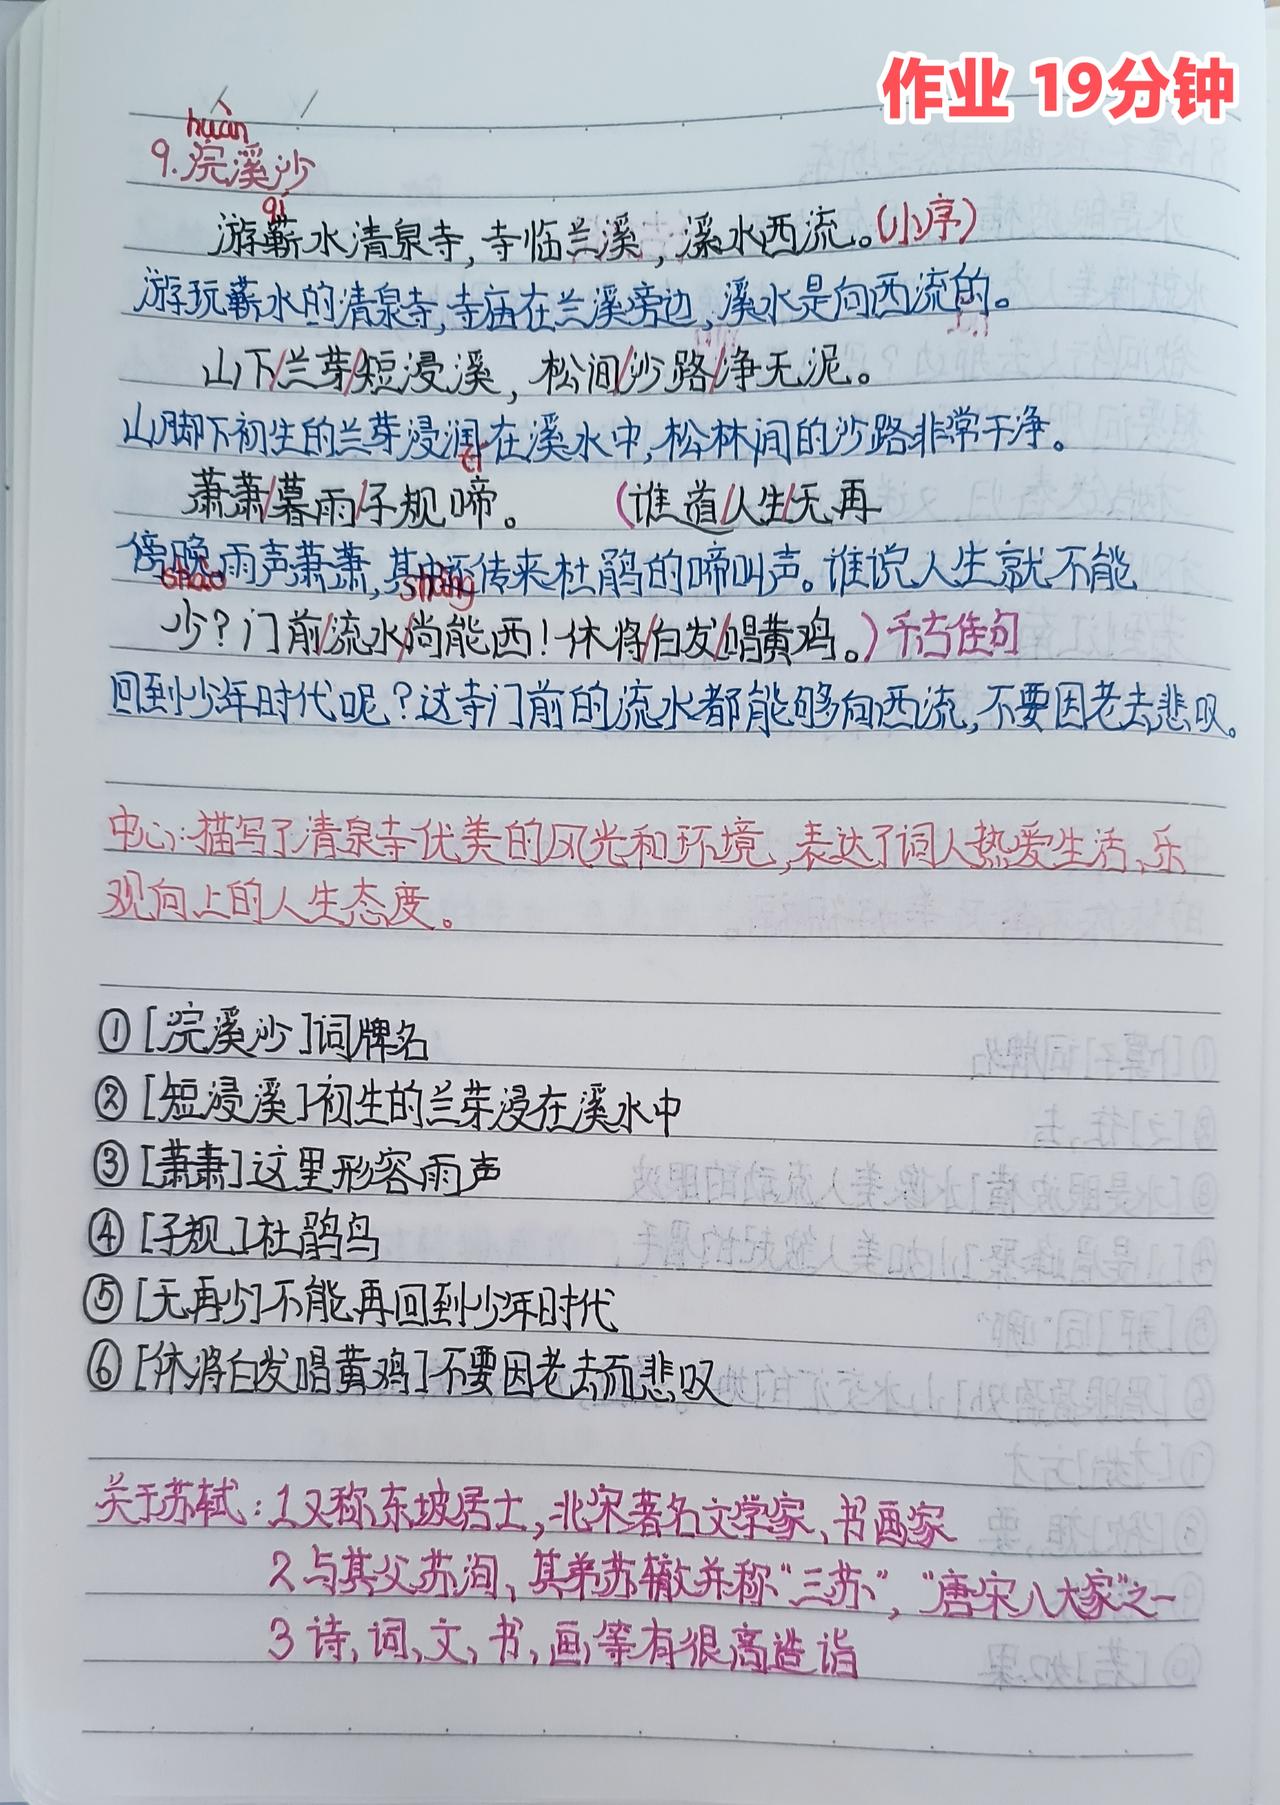 作业 19分钟
huàn
9.浣溪沙
qí
游蕲水清泉寺,寺临兰溪,溪水西流。(小序)
游玩蕲水的清泉寺,寺庙在兰溪旁边,溪水是向西流的。
山下/兰芽/短浸溪,松间/沙路/净无泥。
山脚下初生的兰芽浸润在溪水中,松林间的沙路非常干净。
萧萧/暮雨/子规啼。 (谁道/人生/无再
傍晚雨声萧萧,其中还传来杜鹃的啼叫声。谁说人生就不能
shào shàng
少?门前/流水/尚能西!休将/白发/唱黄鸡。)千古佳句
回到少年时代呢?这寺门前的流水都能够向西流,不要因老去悲叹。
中心:描写了清泉寺优美的风光和环境,表达了词人热爱生活、乐
观向上的人生态度。
①[浣溪沙]词牌名
②[短浸溪]初生的兰芽浸在溪水中
③[萧萧]这里形容雨声
④[子规]杜鹃鸟
⑤[无再少]不能再回到少年时代
⑥[休将白发唱黄鸡]不要因老去而悲叹
关于苏轼:1又称东坡居士,北宋著名文学家、书画家
2与其父苏洵、其弟苏辙并称"三苏","唐宋八大家"之一
3诗,词,文,书,画等有很高造诣